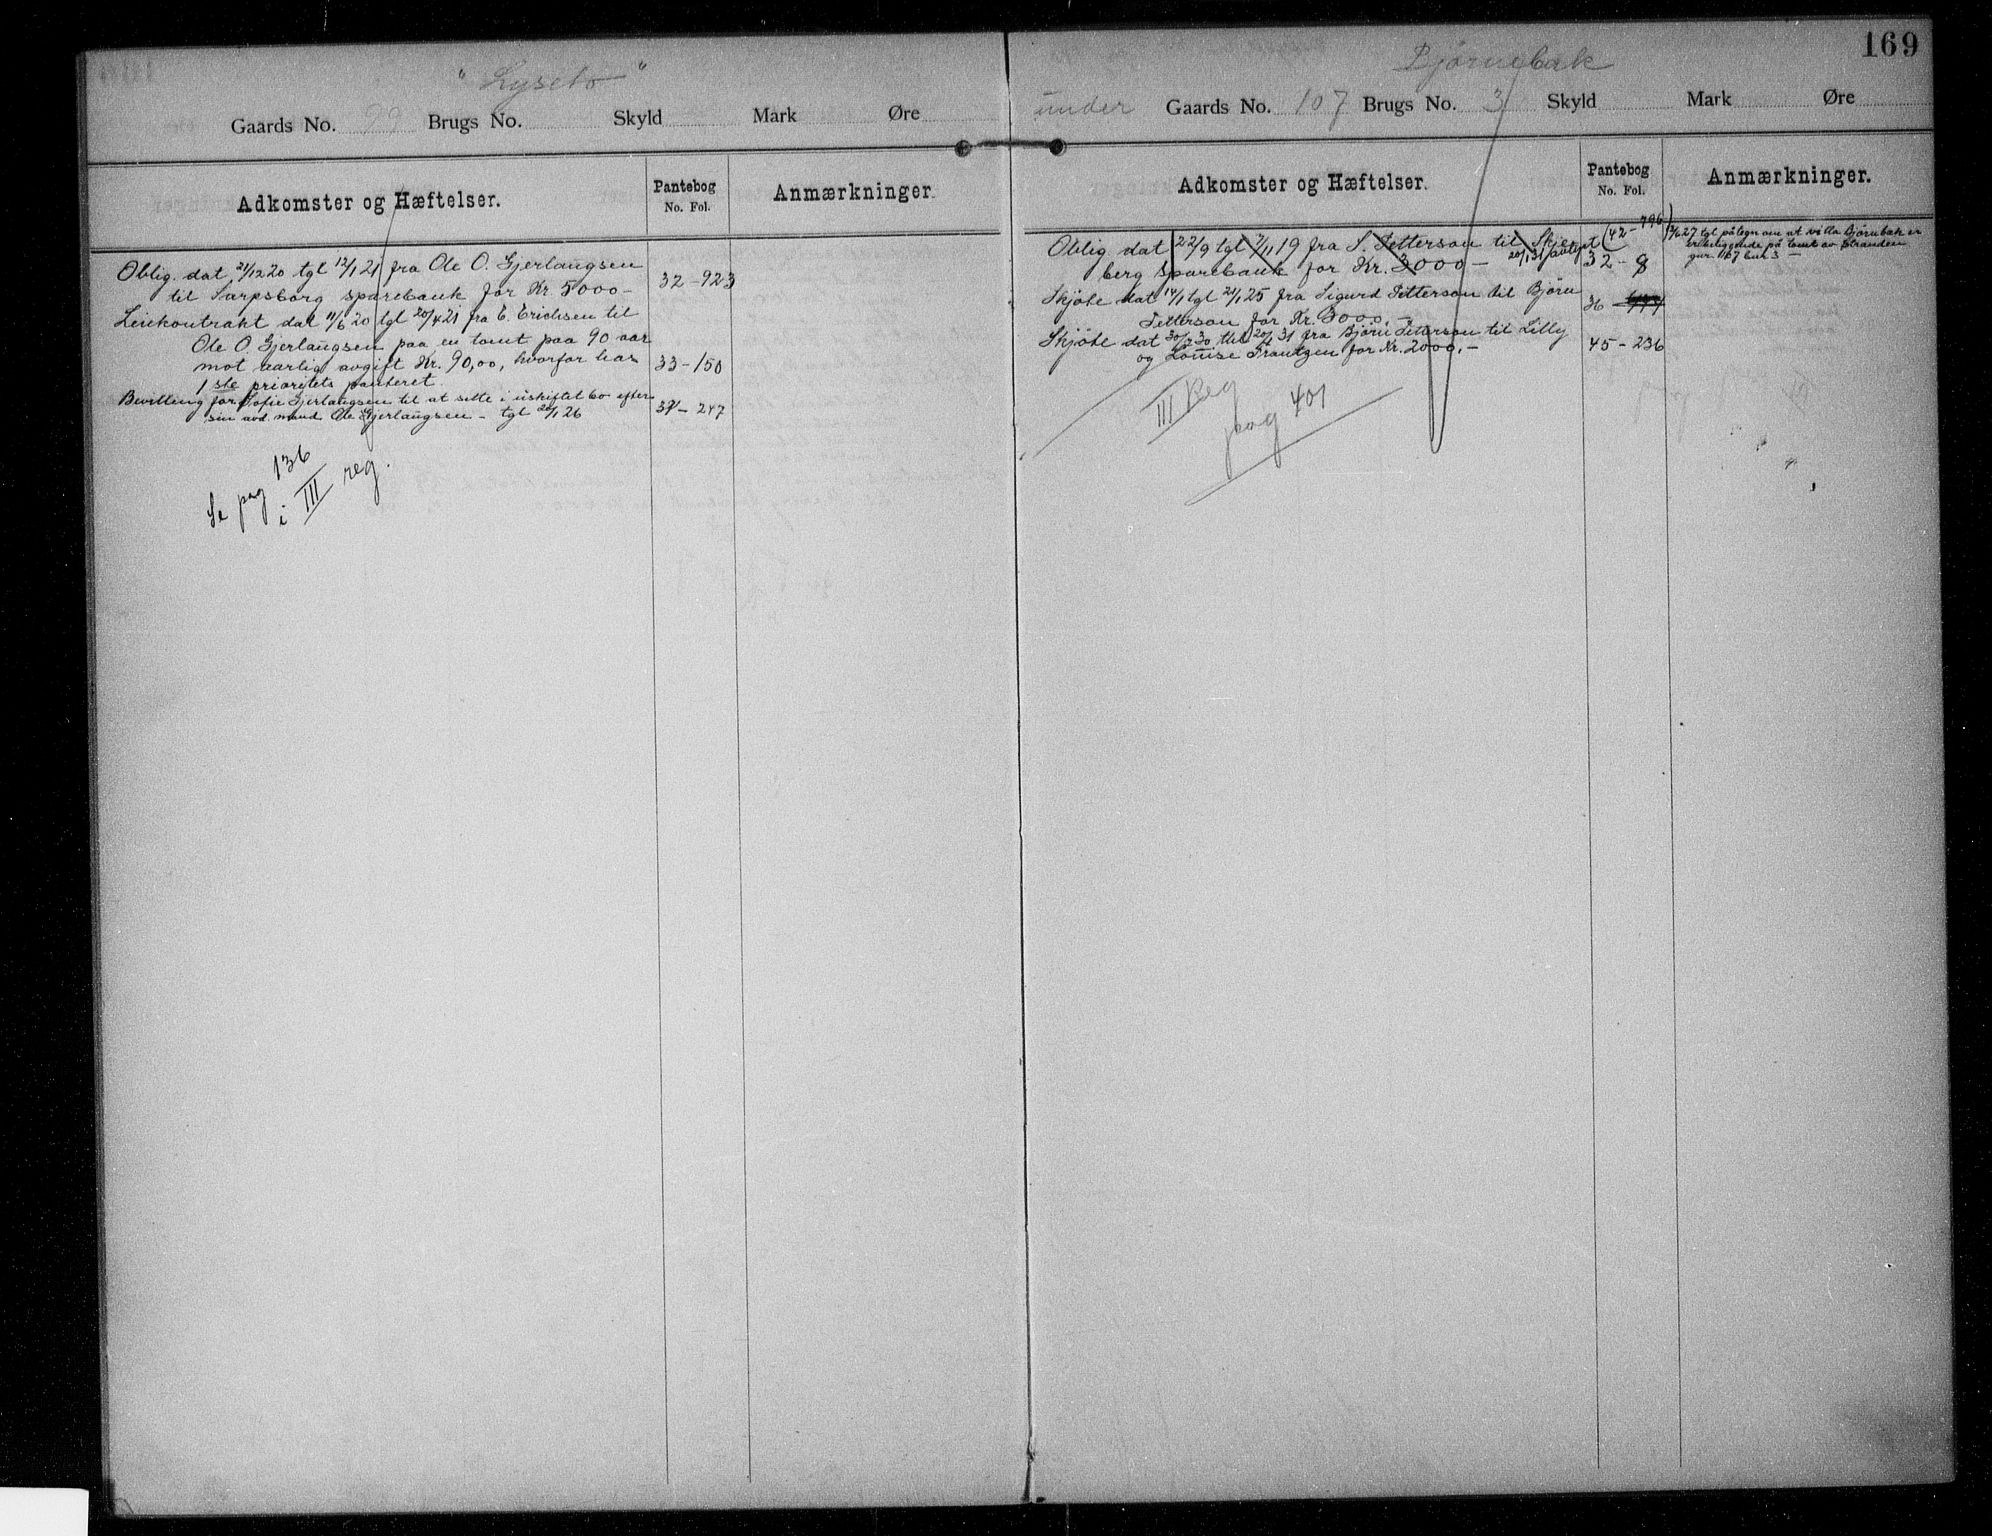 "Lyseto"
Gaards No. 99 Brugs No. Skyld Mark Øre
Adkomster og Hæftelser. Pantebog No. Fol. Anmærkninger.
Oblig. dat 21/12 20 tgl 12/1 21 fra Ole O. Gjerlaugsen
til Sarpsborg sparebank for Kr. 5000- 32-923
Leiekontrakt dat 11/6 20 tgl 20/4 21 fra E. Erichsen til
Ole O. Gjerlaugsen paa en tomt paa 90 aar
mot aarlig avgift Kr. 90,00, hvorfor has
1ste prioritets panteret. 33-150
Bevilling for Sofie Gjerlaugsen til at sitte i uskiftet bo efter
sin avd. mand Ole Gjerlaugsen - tgl 20/1 26 37-247
Se pag 136
i III reg.
169
Bjørnebak
under Gaards No. 107 Brugs No. 3 Skyld Mark Øre
Adkomster og Hæftelser. Pantebog No. Fol. Anmærkninger.
Oblig. dat 22/9 tgl 7/11 19 fra S. Petterson til Skje- (42-796)
berg sparebank for Kr. 3000- 20/1 31 avlyst 32-8
27 tgl påtegn om at villa Bjørnbak er
beliggende på tomt av Stranden
gnr 107 bnr 3 -
Skjøte dat 14/1 tgl 21/1 25 fra Sigurd Petterson til Bjørn
Petterson for Kr. 3000,- 36
Skjøte dat 30/12 30 tgl 20/1 31 fra Bjørn Petterson til Lilly
og Louise Frantzen for Kr. 2000,- 45-236
III Reg
pag 401